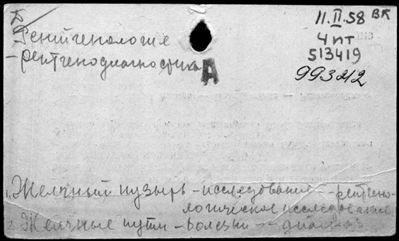 Б
11.II.58 ВК
Рентгенология
4 пт
- рентгенодиагностика
513419
А
993212
1. Желчный пузырь - исследование - рентгено-
логическое исследование
2. Желчные пути - болезни - диагноз